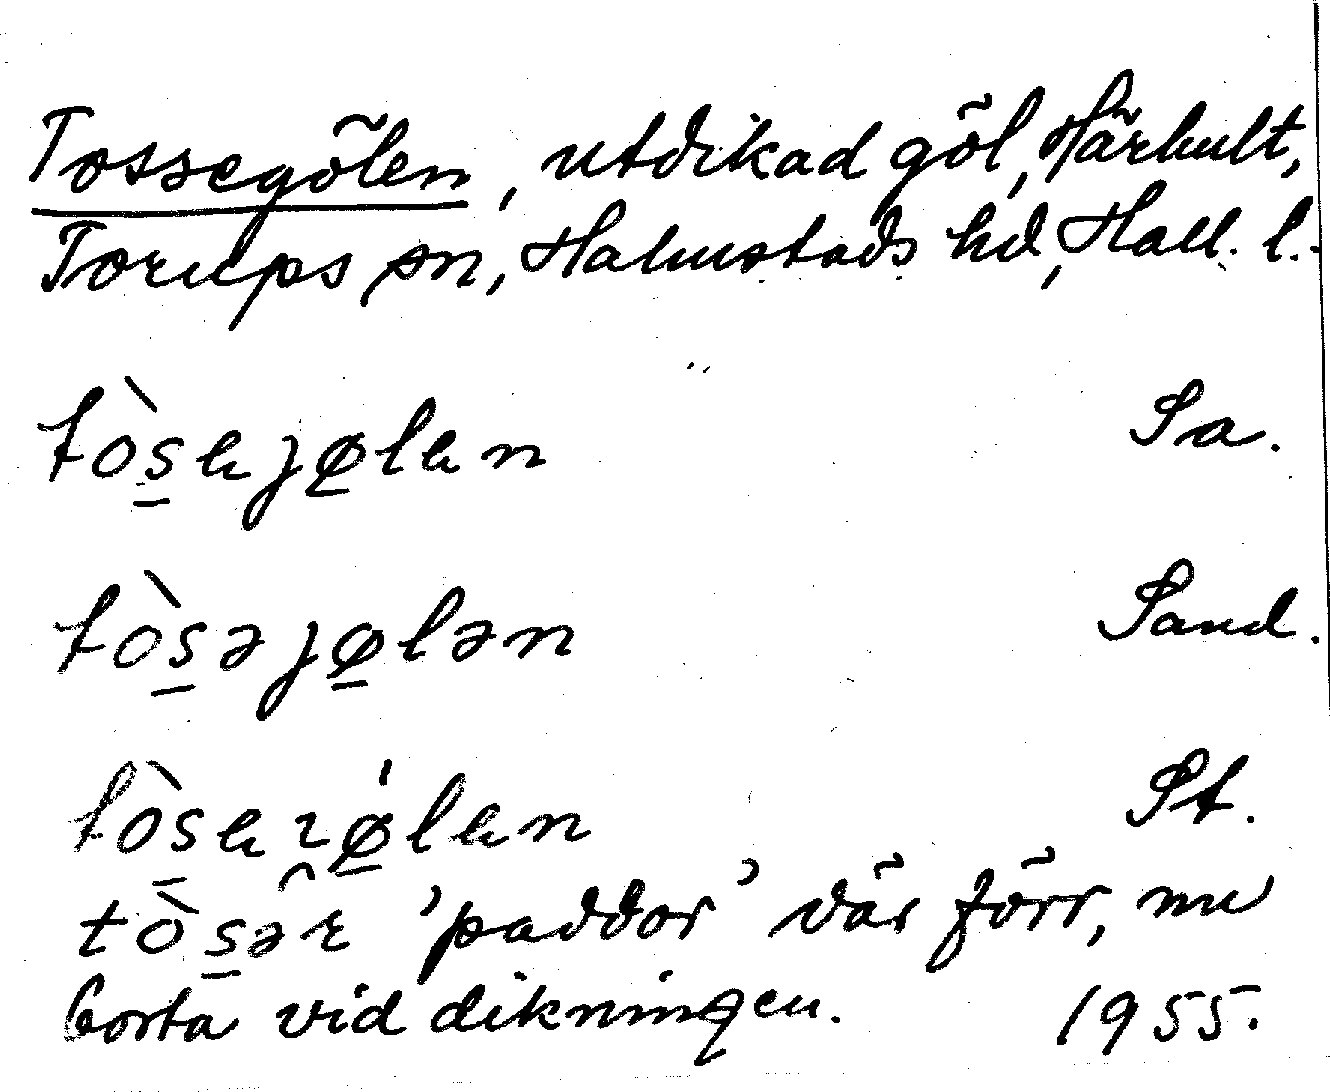 Tossegölen, utdikad göl, Härhult,
Torups sn, Halmstads hd, Hall. l.
tòsejølen Sa.
tòsəjølən Sand.
tòseɿølen St.
tòsər 'paddor' där förr, nu
borta vid dikningen. 1955.